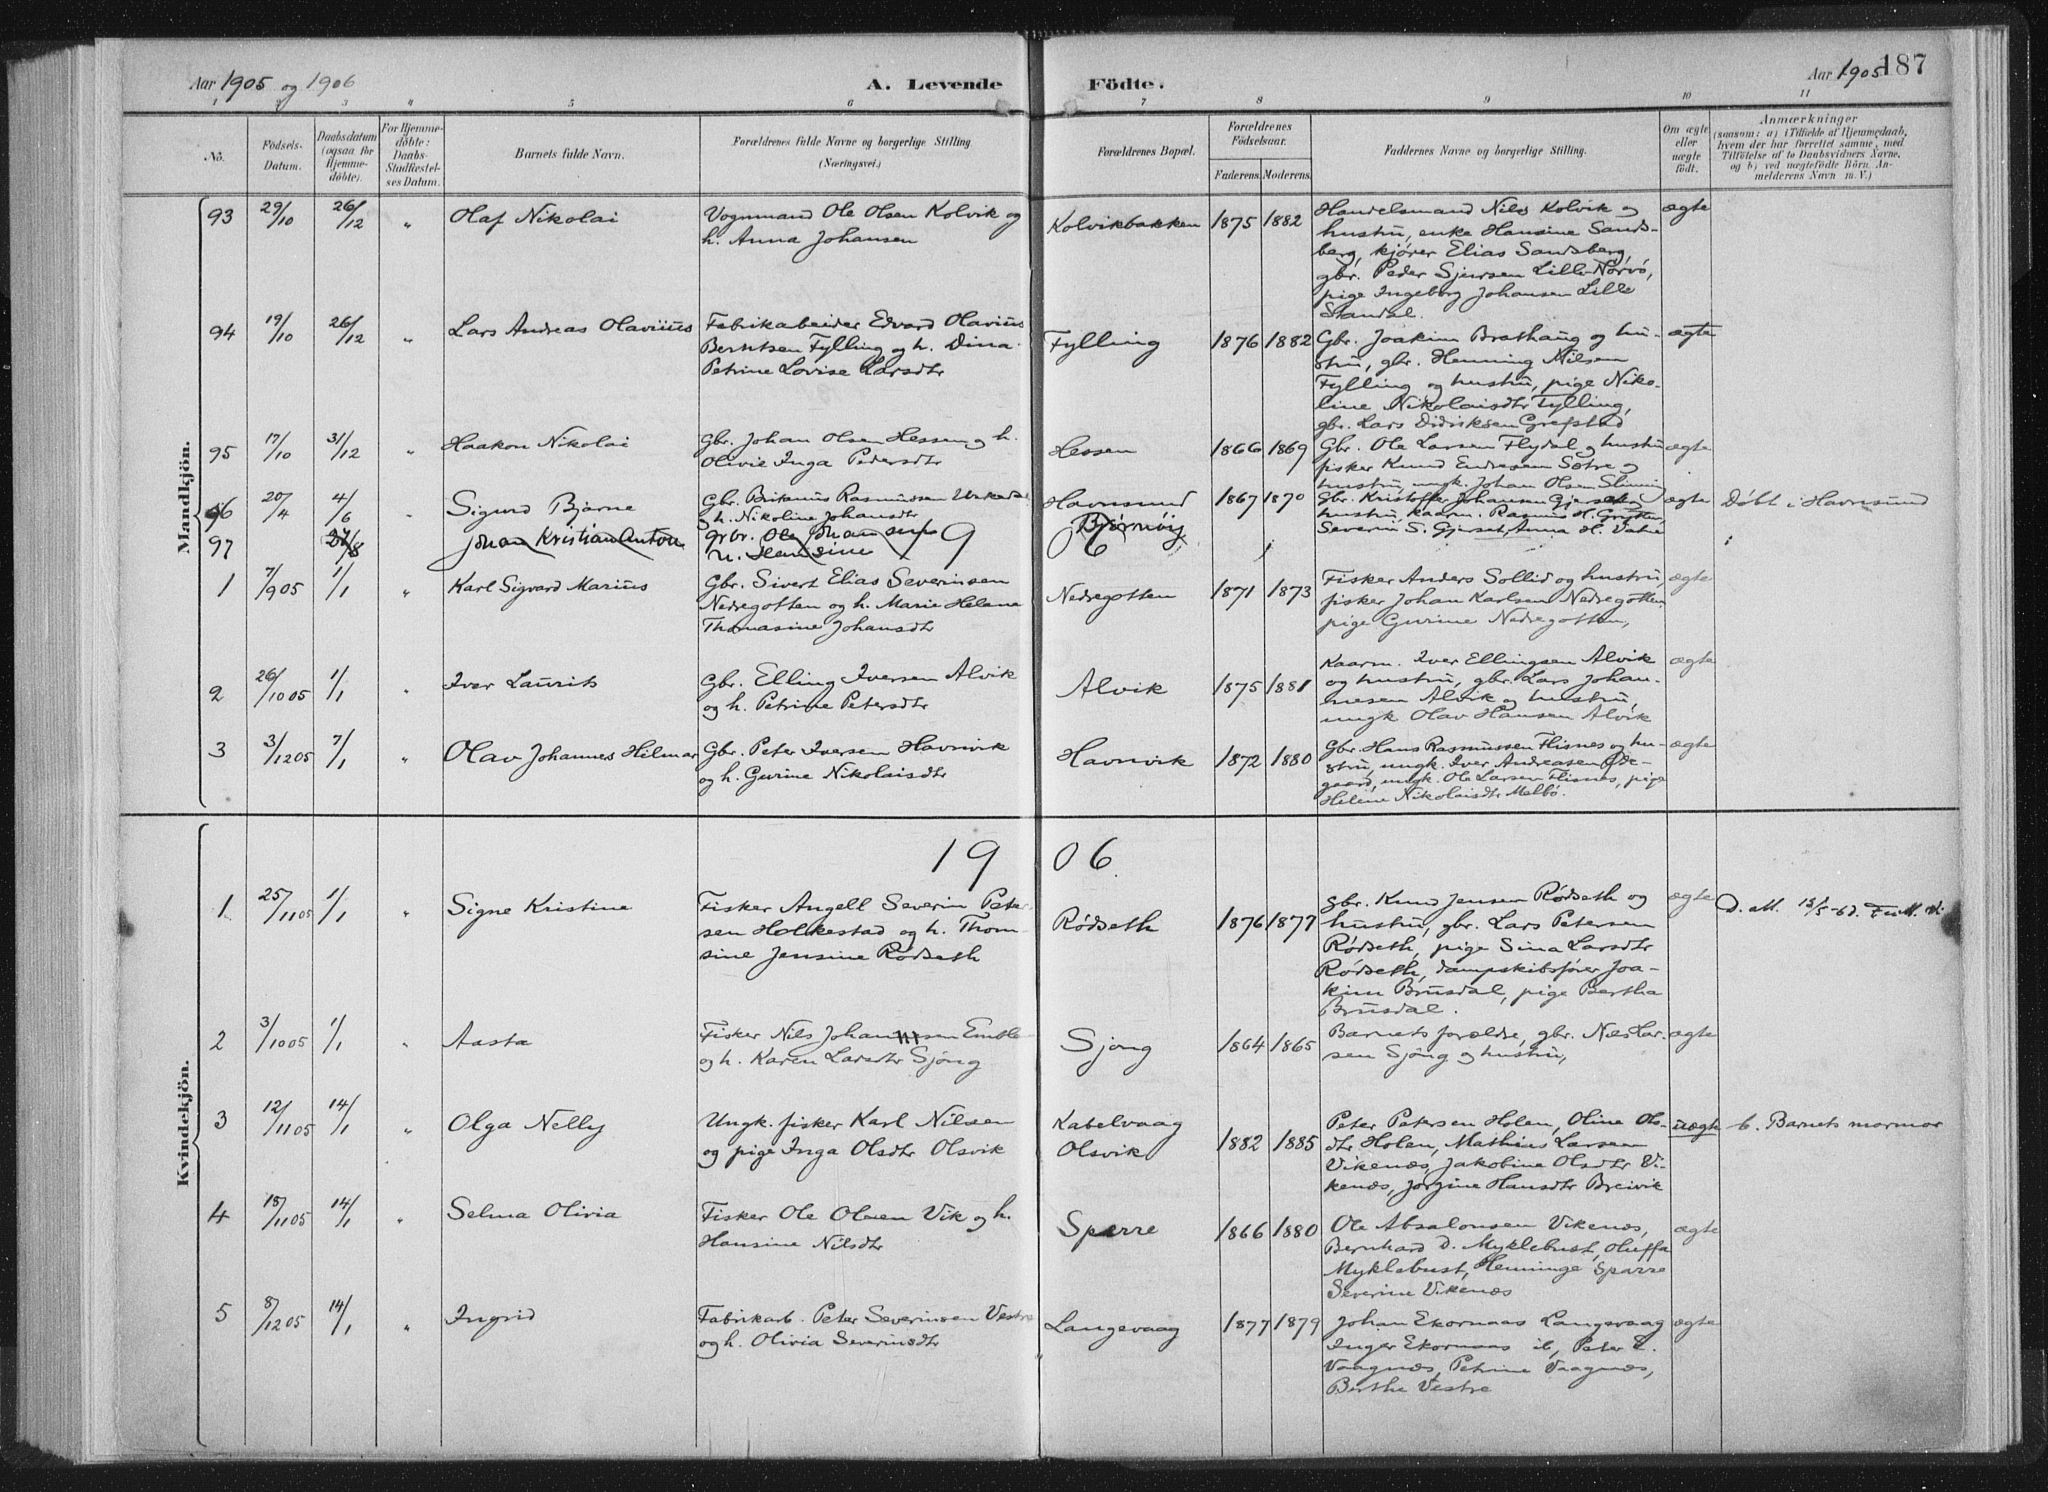 Aar 1905 og 1906
A. Levende Födte.
Aar 1905 187
1 2 3 4 5 6 7 8 9 10 11
No.
Födsels-Datum.
Daabsdatum (ogsaa for Hjemmedöbte).
For Hjemmedöbte: Daabs-Stadfæstelses Datum.
Barnets fulde Navn.
Forældrenes fulde Navne og borgerlige Stilling (Næringsvei.)
Forældrenes Bopæl.
Forældrenes Födselsaar.
Faderens. Moderens.
Faddernes Navne og borgerlige Stilling.
Om ægte eller uægte födt.
Anmærkninger
(saasom: a) i Tilfælde af Hjemmedaab, hvem der har forrettet samme, med Tilföielse af to Daabsvidners Navne, og b) ved uægtefödte Börn, Anmelderens Navn m. V.)
Mandkjön.
93 29/10 26/12 " Olaf Nikolai
Vognmand Ole Olsen Kolvik og
h. Anna Johansen
Kolvikbakken 1875 1882
Handelsmand Nils Kolvik og
hustru, enke Hansine Sands-
berg, kjører Elias Sandsberg,
gbr. Peder Sjursen Lille-Nørvø,
pige Ingeborg Johansen Lille
Standal.
ægte
94 19/10 26/12 " Lars Andreas Olaviius
Fabrikarbeider Edvard Olavius
Berntsen Fylling og h. Dina
Petrine Lovise Larsdtr
Fylling 1876 1882
Gbr. Joakim Brathaug og hu-
stru, gbr. Henning Nilsen
Fylling og hustru, pige Niko-
line Nikolaisdtr Fylling,
gbr. Lars Didriksen Grefstad
ægte
95 17/10 31/12 " Haakon Nikolai
Gbr. Johan Olsen Hessen og h.
Olivie Inga Pedersdtr
Hessen 1866 1869
Gbr. Ole Larsen Flydal og hustru
fisker Knud Endresen Sætre og
hustru, ungk. Johan Olsen
ægte
96 20/4 4/6 " Sigurd Bjarne
Gbr. Rasmussen
og h. Nikoline Johansdtr
Havnsund 1867 1870
Gbr. Kristoffer Johansen Gjerset og
hustru, kaarm. Rasmus H.
Severin S. Gjerset, Anna H.
ægte Døbt i Havnsund
97 27/8 Johan Kristian Anton
Gbr. Ole Johan
h. Hansine
Bjørnøy
1 7/9 05 1/1 " Karl Sigvard Marius
Gbr. Sivert Elias Severinsen
Nedregotten og h. Marie Helene
Thomasine Johansdtr
Nedregotten 1871 1873
Fisker Anders Sollid og hustru
fisker Johan Karlsen Nedregotten
pige Gurine Nedregotten,
ægte
2 26/10 05 1/1 " Iver Laurits
Gbr. Elling Iversen Alvik
og h. Petrine Petersdtr
Alvik 1875 1881
Kaarm. Iver Ellingsen Alvik
og hustru, gbr. Lars Johan-
nesen Alvik og hustru,
ungk Olav Hansen Alvik
ægte
3 3/12 05 7/1 " Olav Johannes Hilmar
Gbr. Peter Iversen Havnvik
og h. Gurine Nikolaisdtr
Havnvik 1872 1880
Gbr. Hans Rasmussen Flisnes og hu-
stru, ungk. Iver Andreasen Øde-
gaard, ungk. Ole Larsen Flisnes, pige
Helene Nikolaisdtr Melbø.
ægte
Kvindekjön.
1906
1 25/11 05 1/1 " Signe Kristine
Fisker Angell Severin Peter-
sen Holkestad og h. Thom-
sine Jensine Rødseth
Rødseth 1876 1877
gbr. Knud Jensen Rødseth og
hustru, gbr. Lars Petersen
Rødseth, pige Sina Larsdtr
Rødseth, dampskibsfører Joa-
kim Brusdal, pige Bertha
Brusdal.
ægte
2 3/10 05 1/1 " Aasta
Fisker Nils Johansen Emble
og h. Karen Larsdtr Sjøng
Sjong 1864 1865
Barnets forælde, gbr. Nes Lar-
sen Sjöng og hustru,
ægte
3 12/11 05 14/1 " Olga Nelly
Ungk. fisker Karl Nilsen
og pige Inga Olsdtr Olsvik
Kabelvaag
Olsvik 1882 1885
Peter Petersen Holen, Oline Ols-
dtr Holen, Mathias Larsen
Vikenæs, Jakobine Olsdtr Vi-
kenæs, Jørgine Hansdtr Breivik
uægte b. Barnets mormor
4 18/11 05 14/1 " Selma Olivia
Fisker Ole Olsen Vik og h.
Hansine Nilsdtr
Sparre 1866 1880
Ole Absalonsen Vikenæs,
Bernhard D. Myklebust, Oluffa
Myklebust, Henninge Sparre
Severine Vikenæs
ægte
5 8/12 05 14/1 " Ingrid
Fabrikarb. Peter Severinsen Vestre
og h. Olivia Severinsdtr
Langevaag 1877 1879
Johan Ekornaas Langevaag
Inger Ekornaas ib, Peter E.
Vaagnæs, Petrine Vaagnæs,
Berthe Vestre
ægte